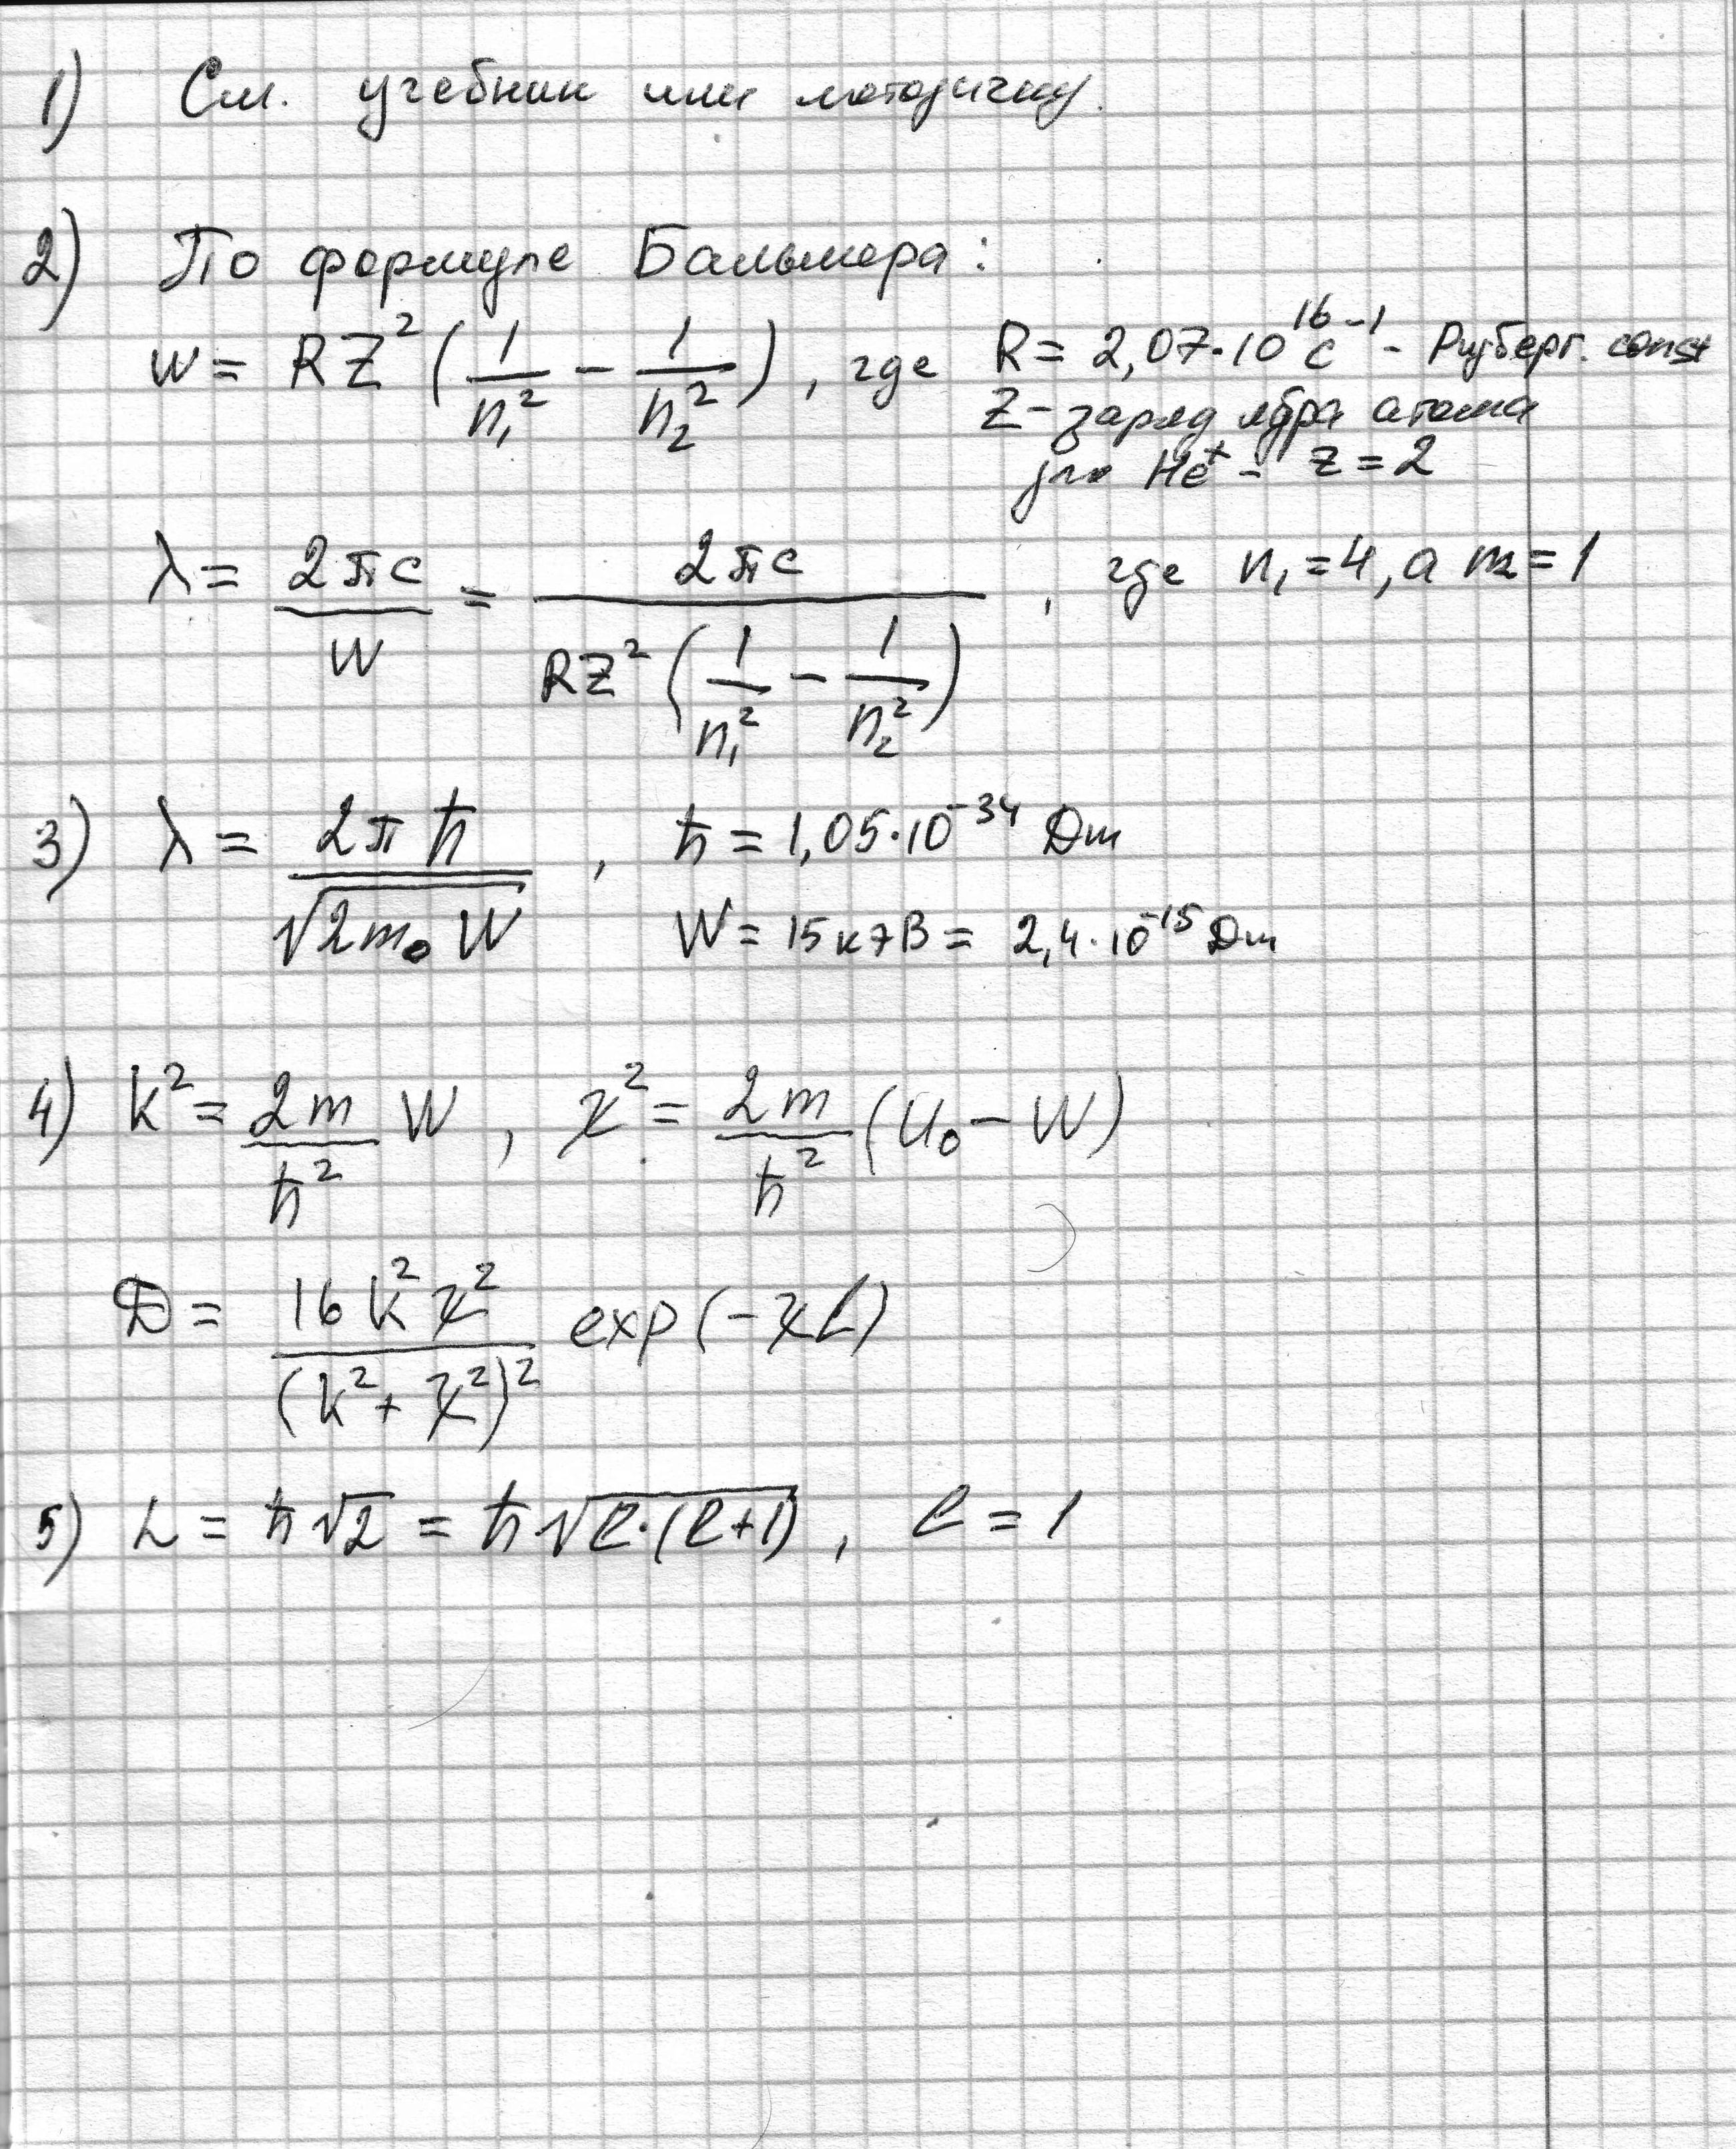 1) См. учебник или методичку.
2) По формуле Бальмера:
W = RZ² (1/n₁² − 1/n₂²), где R = 2,07·10¹⁶ с⁻¹ - Ридберг. const
Z - заряд ядра атома
для He⁺ - Z = 2
λ = 2πc/W = 2πc/(RZ² (1/n₁² − 1/n₂²)), где n₁ = 4, а n₂ = 1
3) λ = 2πħ/√(2m₀W), ħ = 1,05·10⁻³⁴ Дж
W = 15 кэВ = 2,4·10⁻¹⁵ Дж
4) k² = 2m/ħ² W, χ² = 2m/ħ² (U₀ − W)
D = 16k²χ²/(k² + χ²)² exp(−χL)
5) L = ħ√2 = ħ√(l·(l+1)), l = 1